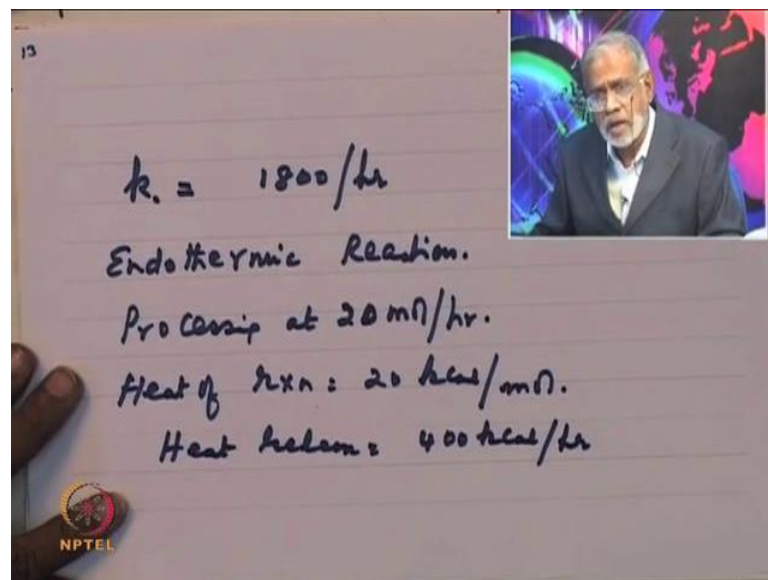 13
k. = 1800/hr
Endothermic Reaction.
Processing at 20 mol/hr.
Heat of rxn = 20 kcal/mol.
Heat = 400 kcal/hr
NPTEL